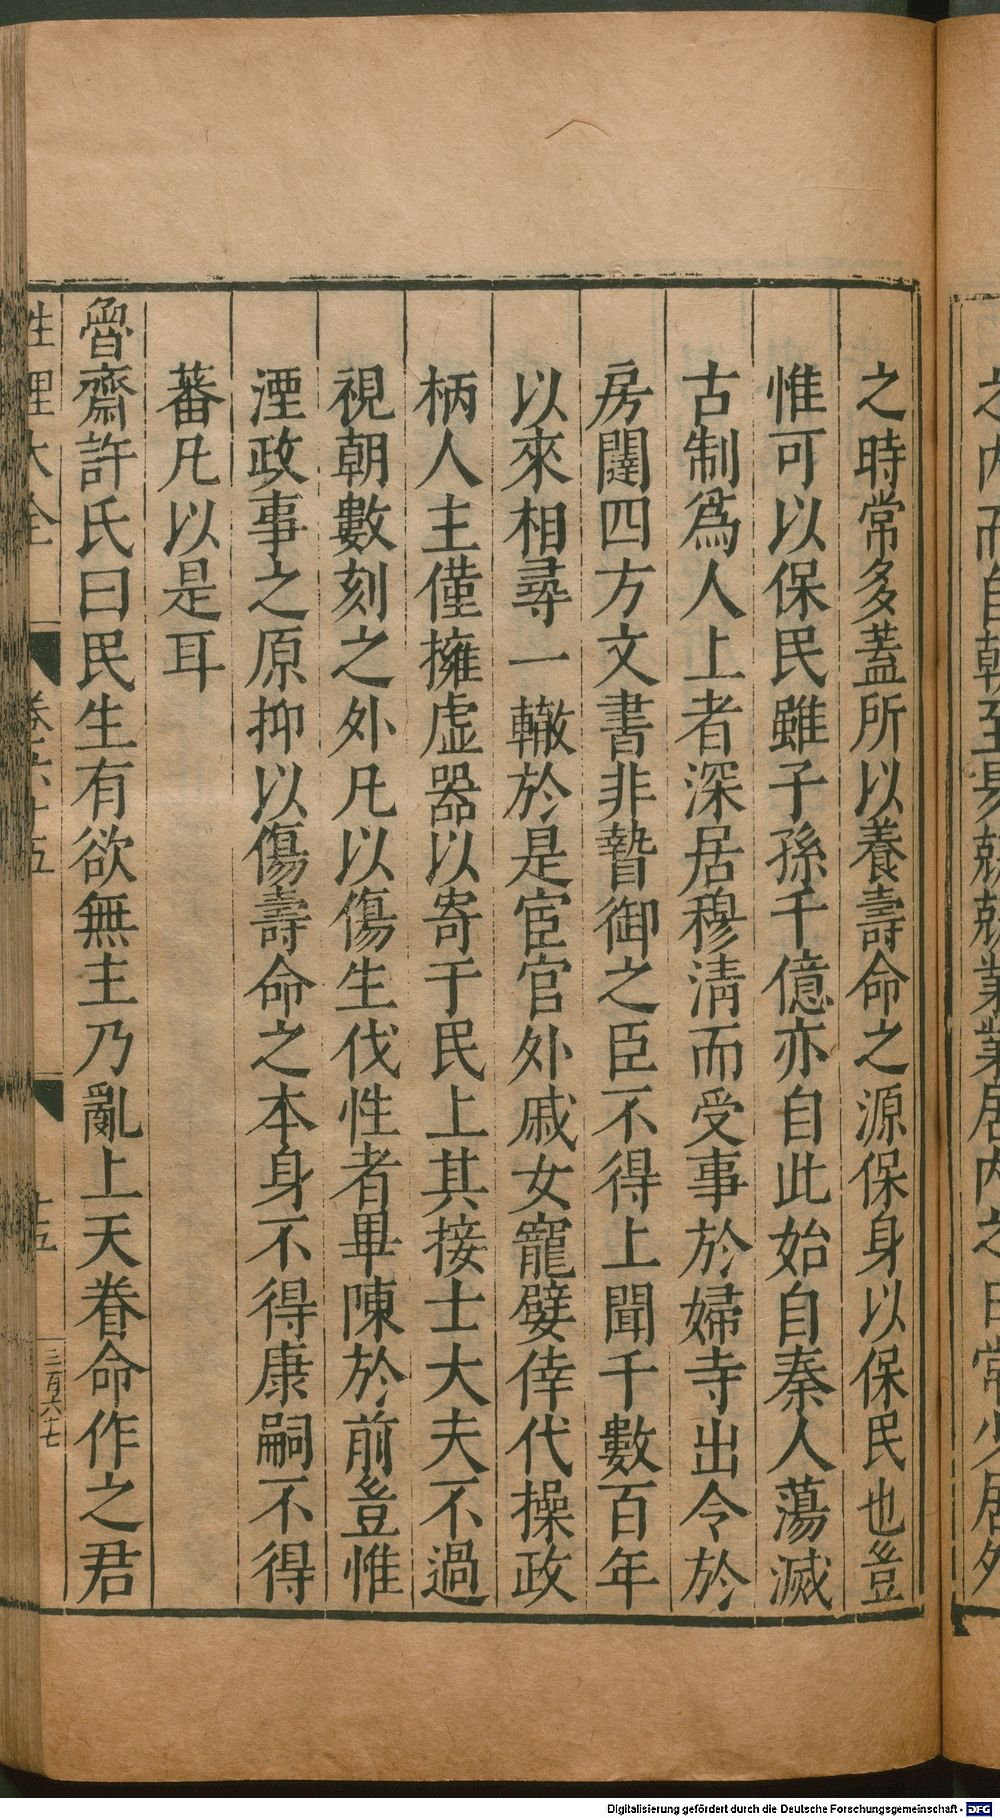 之時常多蓋所以養壽命之源保身以保民也豈
惟可以保民雖子孫千億亦自此始自秦人蕩滅
古制爲人上者深居穆淸而受事於婦寺出令於
房闥四方文書非䞇御之臣不得上聞千數百年
以來相尋一轍於是宦官外戚女寵嬖倖代操政
柄人主僅擁虛器以寄于民上其接士大夫不過
視朝數刻之外凡以傷生伐性者畢陳於前豈惟
湮政事之原抑以傷壽命之本身不得康嗣不得
蕃凡以是耳
魯齋許氏曰民生有欲無主乃亂上天眷命作之君
性理大全
卷六十五
十五
三百六七
之內而自朝至昃兢兢業業居內之日常少居外
Digitalisierung gefördert durch die Deutsche Forschungsgemeinschaft - DFG